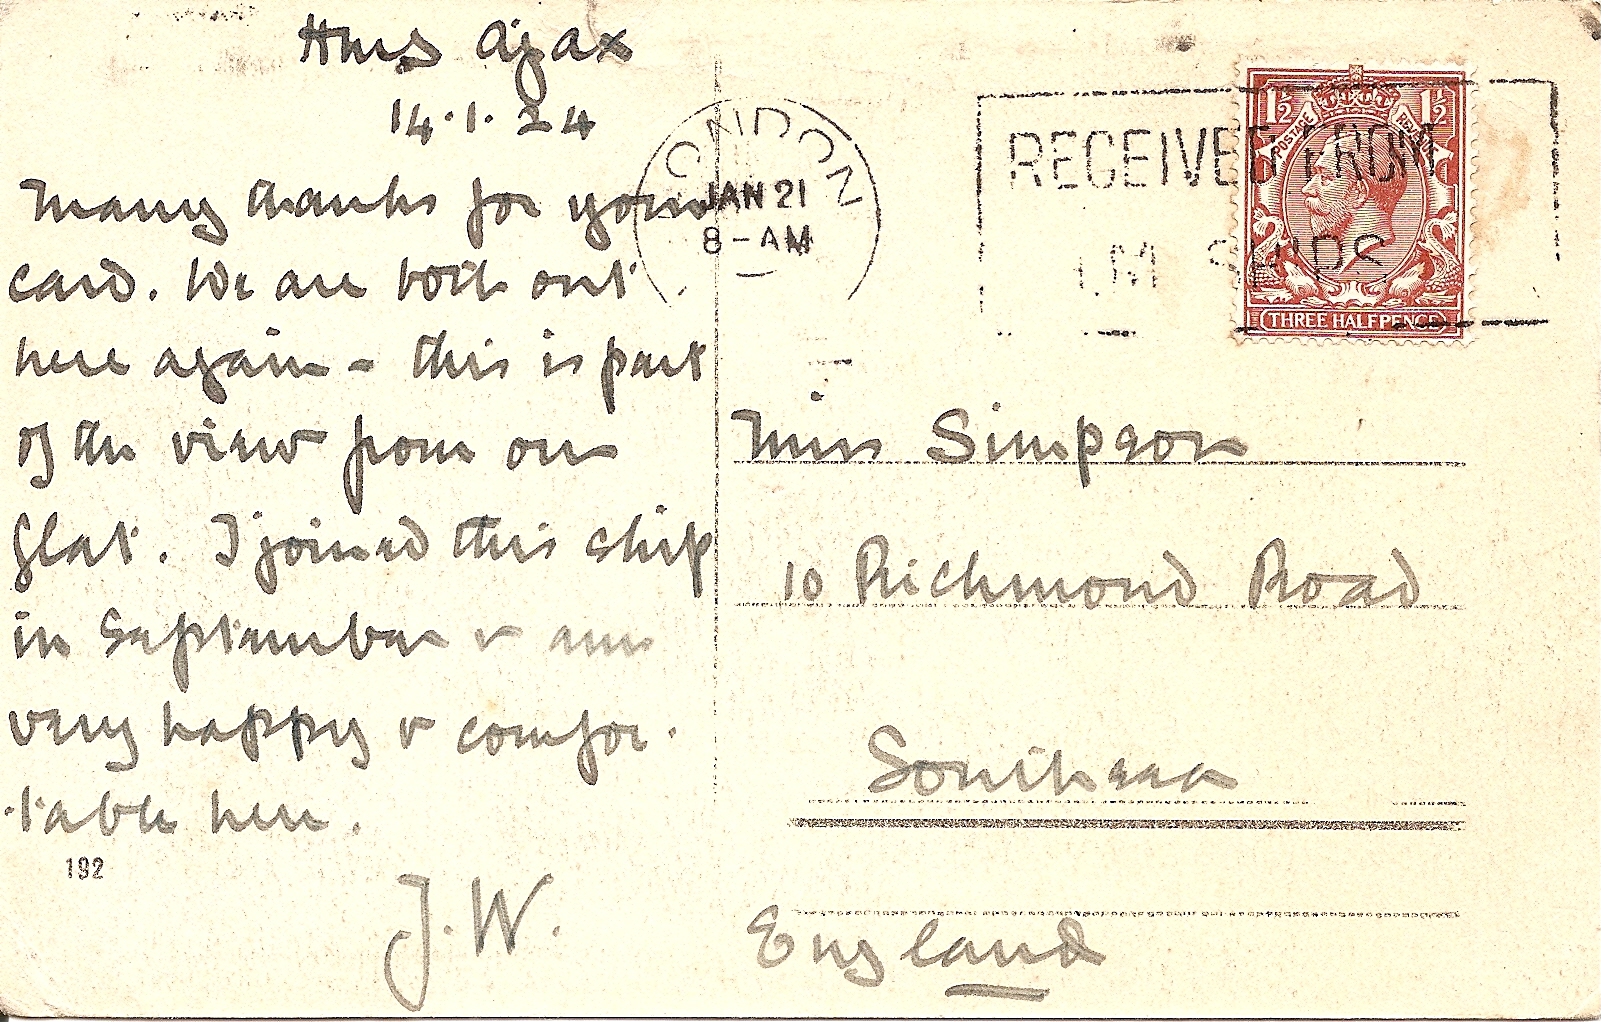 HMS Ajax
14.1.24
Many thanks for your
card. We are both out
here again - this is part
of the view from our
flat. I joined this ship
in September & am
very happy & comfor-
-table here.
192
J.W.
LONDON
JAN 21
8-AM
RECEIVED FROM
H.M. SHIPS
1½ 1½
POSTAGE REVENUE
THREE HALFPENCE
Miss Simpson
10 Richmond Road
Southsea
England